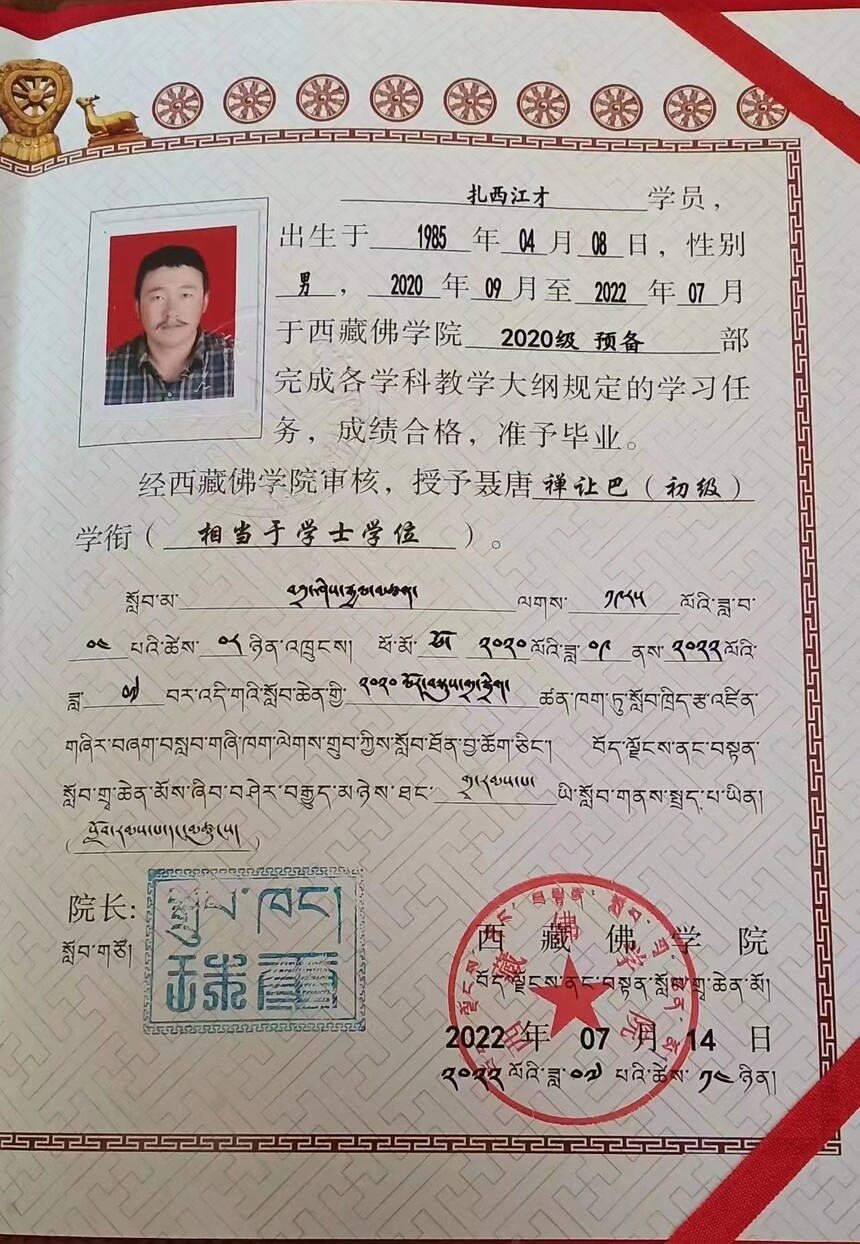 扎西江才 学员，
出生于 1985 年 04 月 08 日，性别
男，2020 年 09 月至 2022 年 07 月
于西藏佛学院 2020级 预备 部
完成各学科教学大纲规定的学习任
务，成绩合格，准予毕业。
经西藏佛学院审核，授予聂唐 禅让巴（初级）
学衔（相当于学士学位）。
སློབ་མ་ ལགས་ ༡༩༨༥ ལོའི་ཟླ་བ་
༠༤ པའི་ཚེས་ ༠༨ ཉིན་འཁྲུངས། ཕོ་མོ་ ཕོ ༢༠༢༠ ལོའི་ཟླ་ ༠༩ ནས་ ༢༠༢༢ ལོའི་
ཟླ་ ༠༧ བར་འདི་གའི་སློབ་ཆེན་གྱི་ ༢༠༢༠ ཚན་ཁག་ཏུ་སློབ་ཁྲིད་རྩ་འཛིན་
གཞིར་བཞག་བསླབ་གཞི་ཁག་ལེགས་གྲུབ་ཀྱིས་སློབ་ཐོན་བྱ་ཆོག་ཅིང་། བོད་ལྗོངས་ནང་བསྟན་
སློབ་གྲྭ་ཆེན་མོས་ཞིབ་བཤེར་བརྒྱུད་མཉེས་ཐང་ ཡི་སློབ་གནས་སྤྲད་པ་ཡིན།
院长:
སློབ་གཙོ།
西藏佛学院
བོད་ལྗོངས་ནང་བསྟན་སློབ་གྲྭ་ཆེན་མོ།
2022 年 07 月 14 日
༢༠༢༢ ལོའི་ཟླ་ ༠༧ པའི་ཚེས་ ༡༤ ཉིན།
西藏佛学院